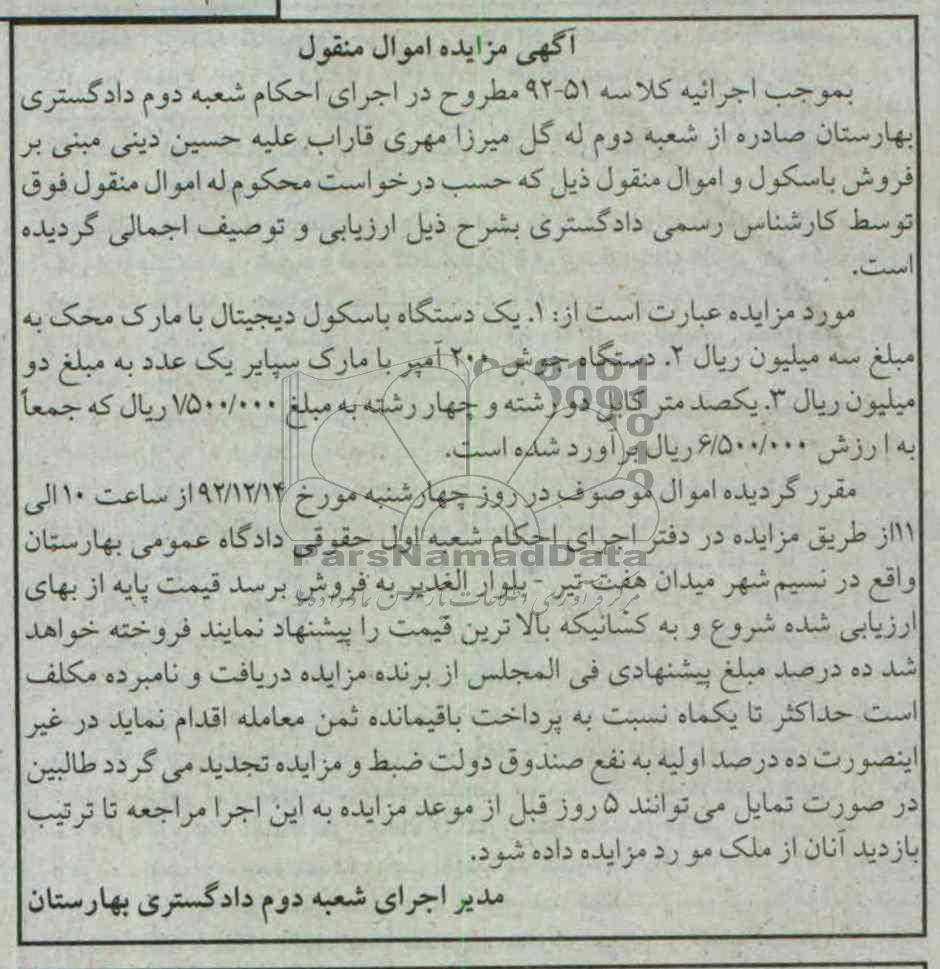 آگهی مزایده اموال منقول
بموجب اجرائیه کلاسه ۵۱-۹۲ مطروح در اجرای احکام شعبه دوم دادگستری
بهارستان صادره از شعبه دوم له گل میرزا مهری قاراب علیه حسین دینی مبنی بر
فروش باسکول و اموال منقول ذیل که حسب درخواست محکوم له اموال منقول فوق
توسط کارشناس رسمی دادگستری بشرح ذیل ارزیابی و توصیف اجمالی گردیده
است.
مورد مزایده عبارت است از: ۱. یک دستگاه باسکول دیجیتال با مارک محک به
مبلغ سه میلیون ریال ۲. دستگاه جوش ۲۰۰ آمپر با مارک سپایر یک عدد به مبلغ دو
میلیون ریال ۳. یکصد متر کابل دو رشته و چهار رشته به مبلغ ۱/۵۰۰/۰۰۰ ریال که جمعاً
به ارزش ۶/۵۰۰/۰۰۰ ریال برآورد شده است.
مقرر گردیده اموال موصوف در روز چهارشنبه مورخ ۹۲/۱۲/۱۴ از ساعت ۱۰ الی
۱۱از طریق مزایده در دفتر اجرای احکام شعبه اول حقوقی دادگاه عمومی بهارستان
ParsNamadData
واقع در نسیم شهر میدان هفت تیر - بلوار الغدیر به فروش برسد قیمت پایه از بهای
ارزیابی شده شروع و به کسانیکه بالا ترین قیمت را پیشنهاد نمایند فروخته خواهد
شد ده درصد مبلغ پیشنهادی فی المجلس از برنده مزایده دریافت و نامبرده مکلف
است حداکثر تا یکماه نسبت به پرداخت باقیمانده ثمن معامله اقدام نماید در غیر
اینصورت ده درصد اولیه به نفع صندوق دولت ضبط و مزایده تجدید می گردد طالبین
در صورت تمایل می توانند ۵ روز قبل از موعد مزایده به این اجرا مراجعه تا ترتیب
بازدید آنان از ملک مو رد مزایده داده شود.
مدیر اجرای شعبه دوم دادگستری بهارستان